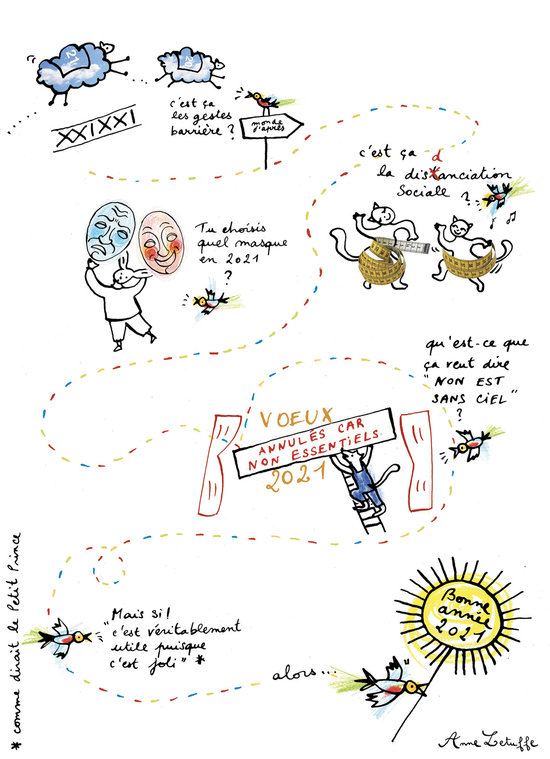 21
20
XXIXXI
c'est ça
les gestes
barrière ?
monde
d'après
c'est ça d
la distanciation
sociale ?
Tu choisis
quel masque
en 2021
?
qu'est-ce que
ça veut dire
"NON EST
SANS CIEL"
?
VOEUX
ANNULÉS CAR
NON ESSENTIELS
2021
Mais si!
"c'est véritablement
utile puisque
c'est joli" *
alors...
Bonne
année
2021
* comme dirait le Petit Prince
Anne Letuffe